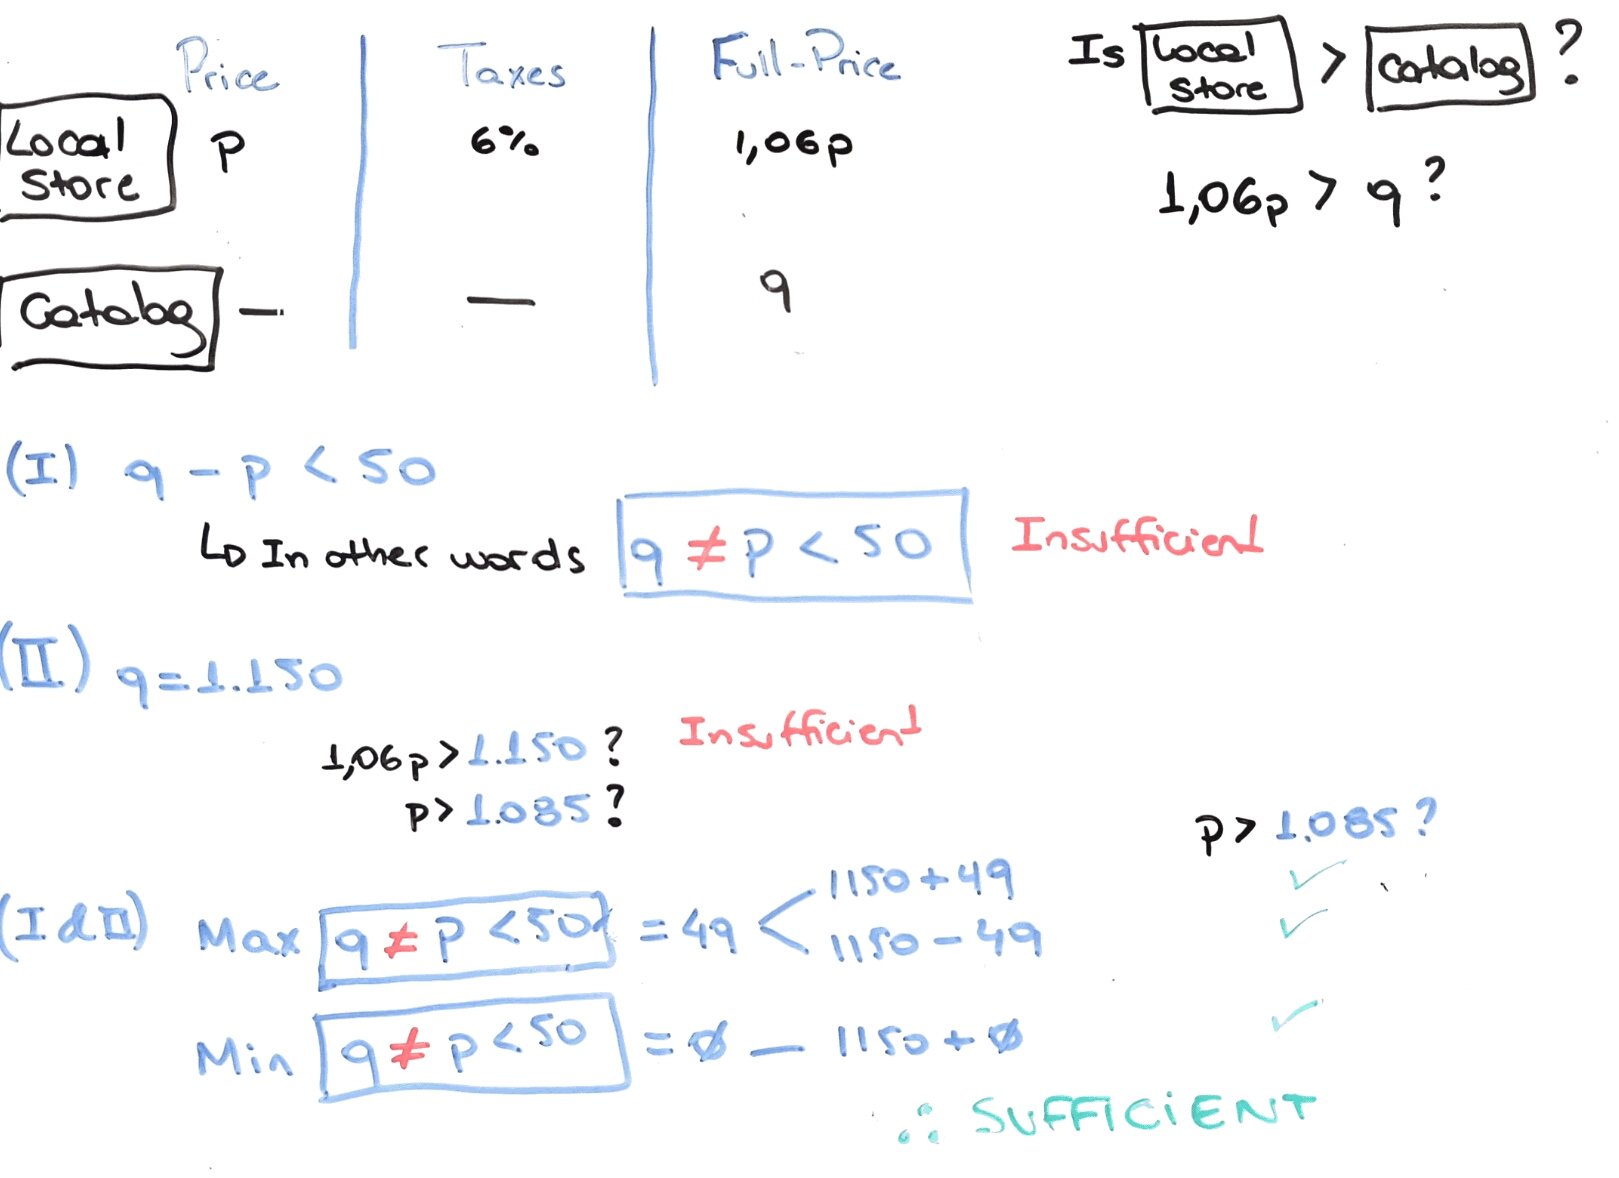 Price Taxes Full-Price
Local Store p 6% 1,06p
Catalog — — q
Is Local Store > Catalog ?
1,06p > q ?
(I) q - p < 50
↳ In other words q ≠ p < 50 Insufficient
(II) q = 1.150
1,06p > 1.150 ? Insufficient
p > 1.085 ?
p > 1.085 ?
(I & II) Max q ≠ p < 50 = 49 < 1150 + 49 ✓
1150 - 49 ✓
Min q ≠ p < 50 = ø — 1150 + ø ✓
∴ SUFFICIENT